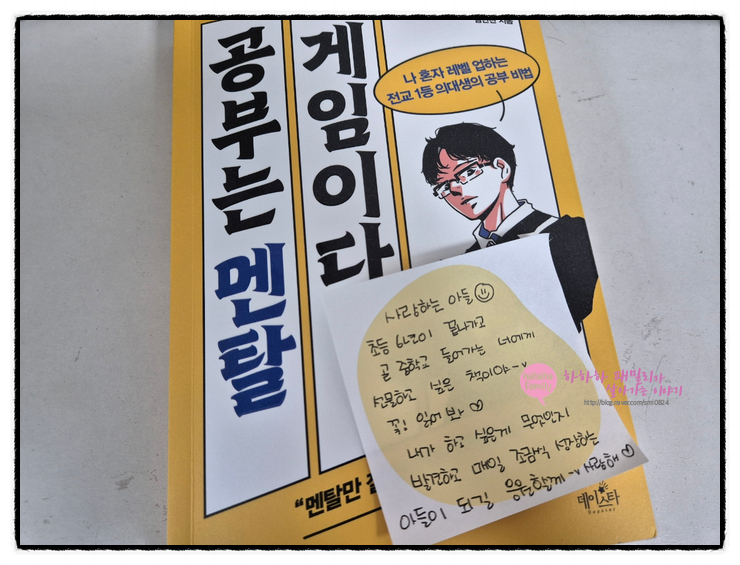 공부는 멘탈
게임이다
나 혼자 레벨 업하는
전교 1등 의대생의 공부 비법
"멘탈만
사랑하는 아들
초등 6년이 끝나가고
곧 중학교 들어가는 너에게
선물하고 싶은 책이야~
꼭! 읽어봐
내가 하고 싶은게 무엇인지
발견하고 매일 조금씩 성장하는
아들이 되길 응원할게~ 사랑해
하하하 패밀리가
살아가는 이야기
데이스타
Daystar